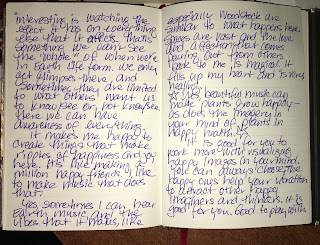 interesting is watching the
effect it has on everything
else that it affects. That's
something we can't see
the whole of when we're
in Earth life form. We only
get glimpses there, and
sometimes they are limited
to what others want us
to know, see or, not know, see.
there we can have
awareness of everything.
It makes me happy to
create things that make
ripples of happiness and joy
here. It's like making a
million happy friends. I like
to make music that does
that.
Yes, sometimes I can hear
Earth music and the
vibes that it makes, like
especially Woodstock are
similar to what happens here.
Shows are vast and the love
and affection that comes
pouring out from others
to me is magical. It
fills up my heart and is very
healing.
Yes, beautiful music can
make plants grow happily –
so does the imagery in
your mind of plants in
happy health.
It is good for you to
work more with visualizing
happy images in your mind.
You can always choose the
happy ones help your vibration
to attract other happy
imaginers and thinkers. It is
good for you. Good to play with